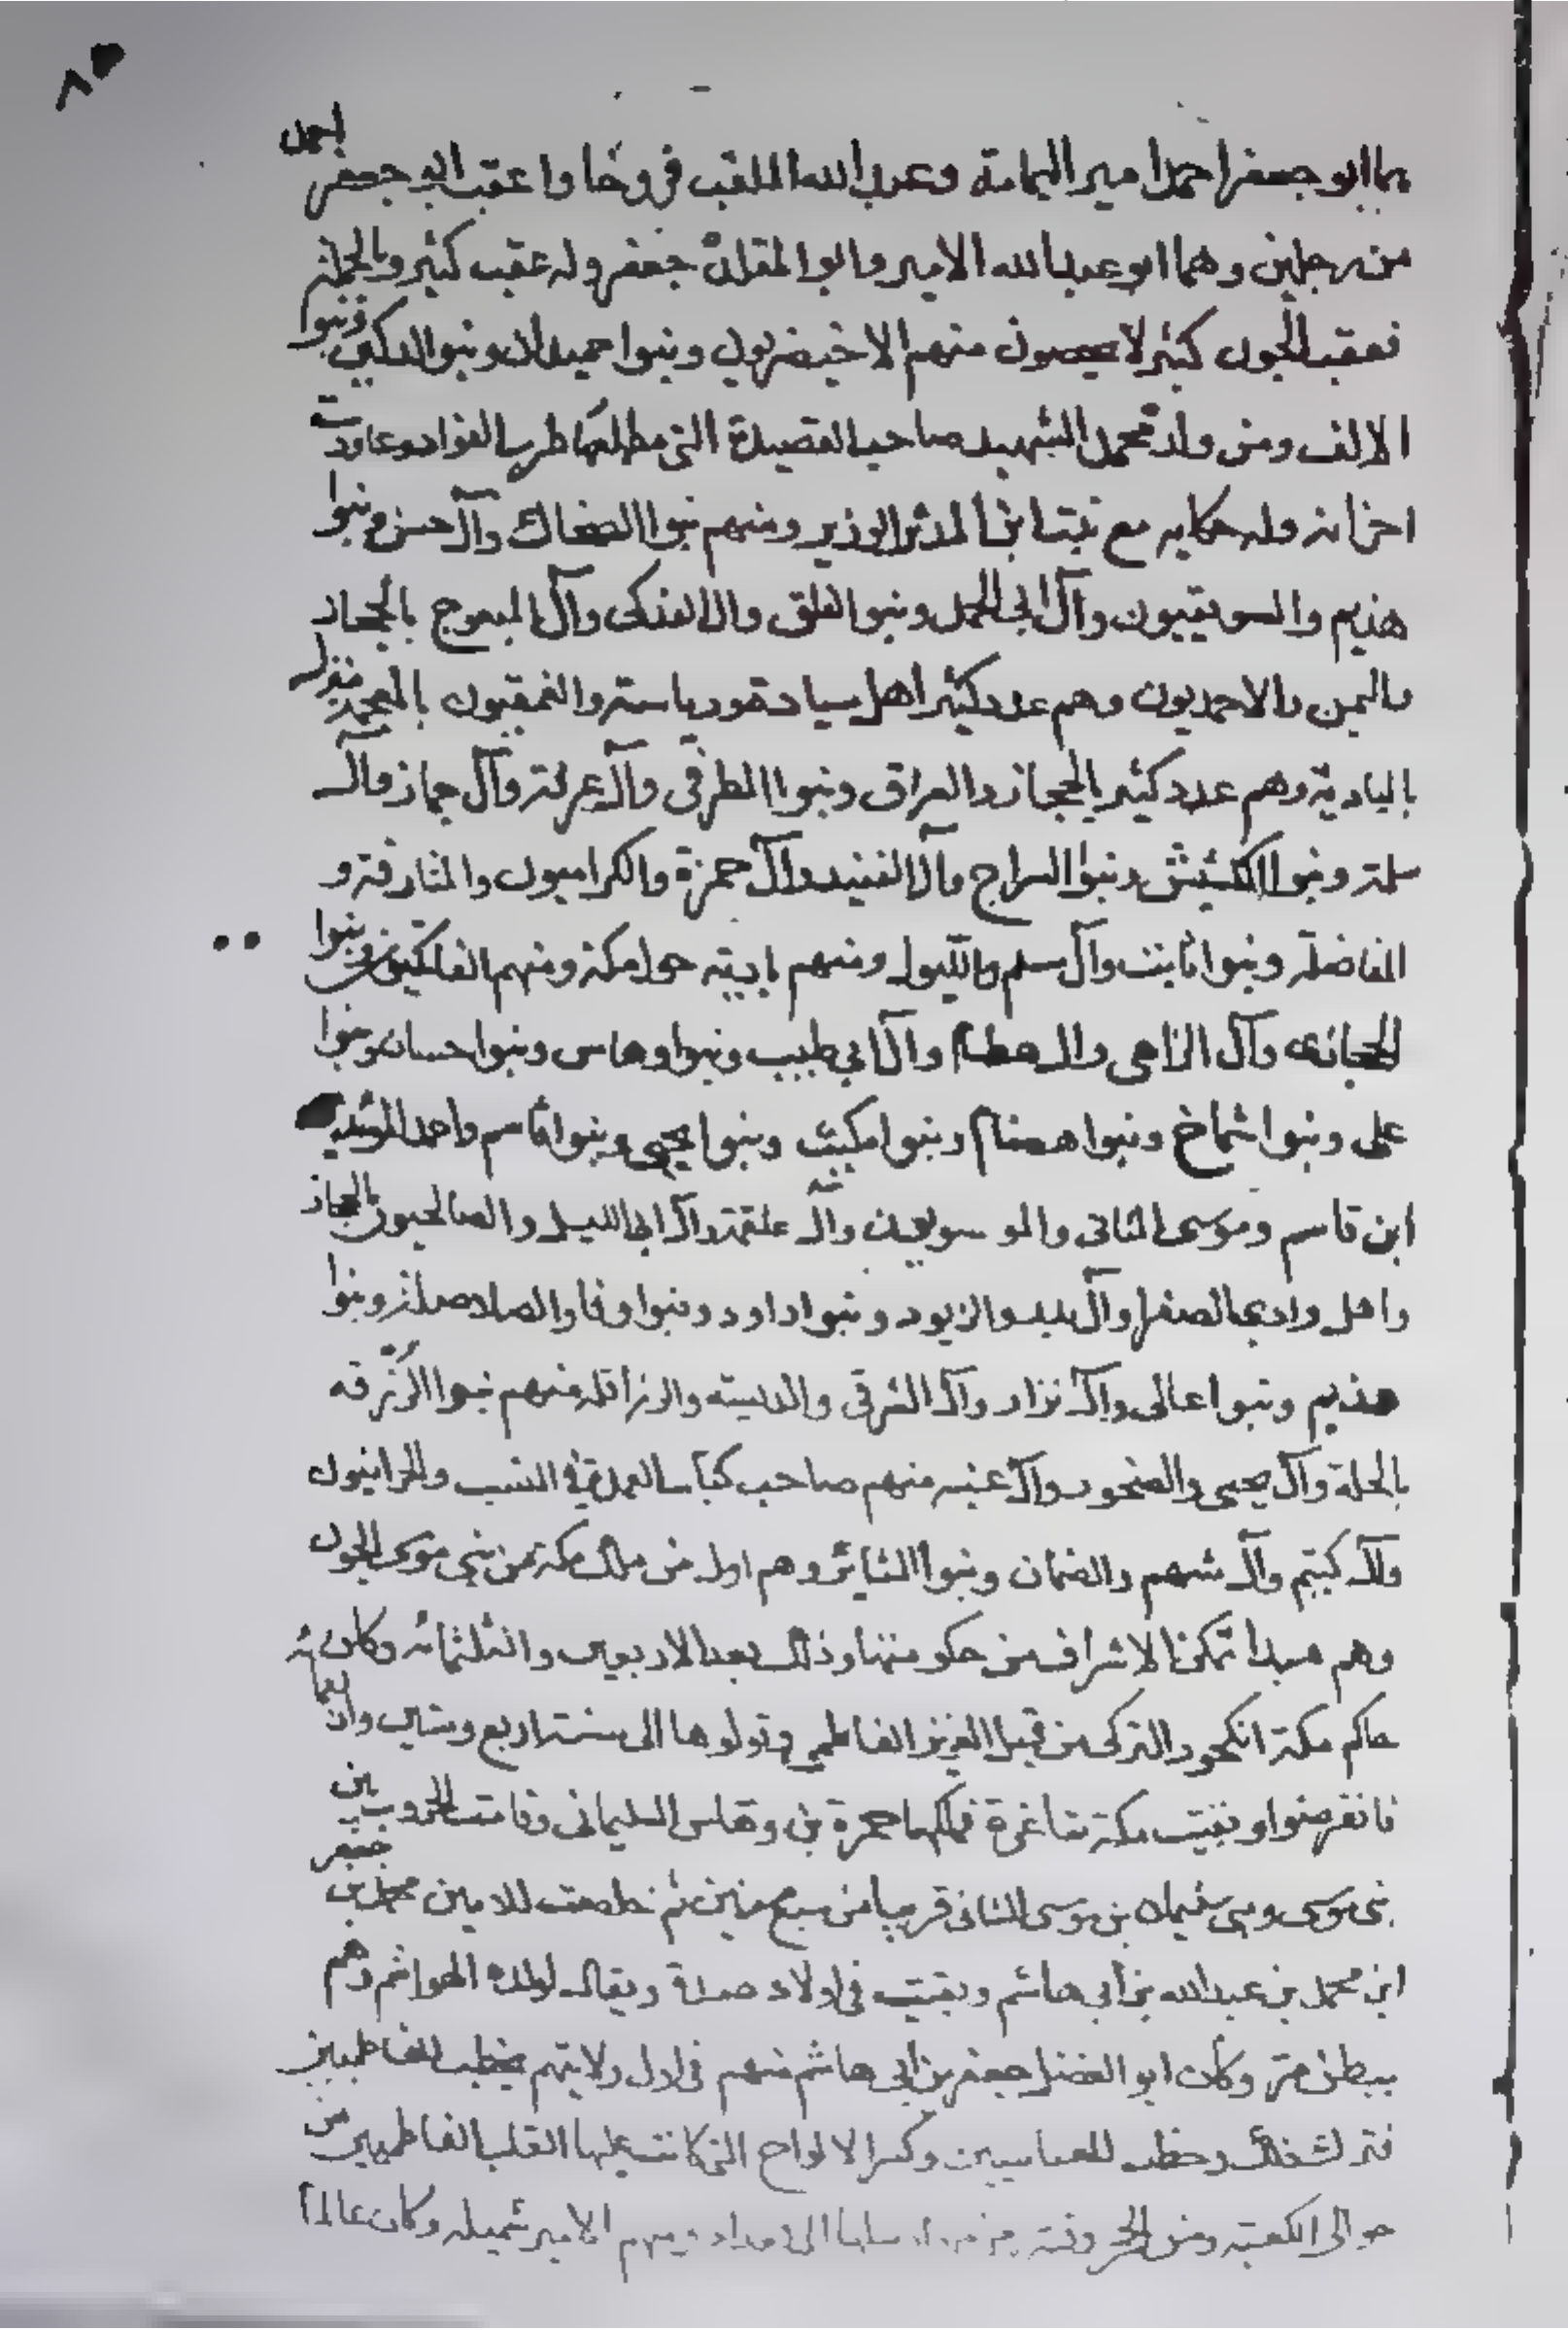 ٨٥
بها ابو جعفر احمد امير اليمامة وعبد الله الملقب فروخا واعقب ابو جعفر احمد
من رجلين وهما ابو عبد الله الامير وابو المقلد جعفر وله عقب كثير وبالجملة
فعقب الجون كثير لا يحصون منهم الاخيضريون وبنوا حميدان وبنوا الدكين وبنوا
الالف ومن ولد محمد الشهيد صاحب القصيدة التي مطلعها طرب الفواد وعاودت
احزانه وله حكايه مع بنت ابن المدثر الوزير ومنهم بنوا الضحاك وآل حسن وبنوا
هذيم والسويقيون وآل ابي الحمد وبنوا الفلق وال الفنكى وآل المبعوج بالحجاز
باليمن والاحمديون وهم عدد كثير اهل سيادة ورياسة والغمقيون
بالبادية وهم عدد كثير بالحجاز والعراق وبنوا المطرفى وآل عرفة وآل جماز وال
سلمة وبنوا الكشيش وبنوا السراج وآل الفنيد وآل حمزة والكراميون والمنارقة و
المفاضلة وبنوا ثابت وآل مسلم والليول ومنهم بادية حول مكة ومنهم الفاتكيون وبنوا
الحجازى وآل الزاهى وال هطام وآل ابي طيب وبنوا وهاس وبنوا حسان وبنوا
على وبنوا شماخ وبنوا هضام وبنوا مكثر وبنوا يحيى وبنوا قاسم واحمد المؤيد
ابن قاسم وموسى الثانى والموسويون وآل علقمة وآل ابي الليل والصالحيون بالحجاز
واهل وادي الصفرا وآل بدر والزيود وبنوا داود وبنوا وفا والصلاصلة وبنوا
هذيم وبنوا عالى وآل نزار وآل الشرقى والدليسه والرزاقله منهم بنوا الزرقه
بالحلة وآل يحيى والضحور وآل عنبه منهم صاحب كتاب العمدة في النسب والحرانيون
وآل كتيم وآل شهم والضمان وبنوا الثائر وهم اول من ملك مكة من بني موسى الجون
وهم مبدا تمكن الاشراف من حكومتها وذلك بعد الاربعين والثلثمائه وكان
حاكم مكة انكجور التركى من قبل العزيز الفاطمي وتولوها الى سنة اربع وستين واربعمائه
فانقرضوا وبقيت مكة شاغرة فملكها حمزة بن وهاس السليمانى وقامت الحروب بين
بني موسى وبني سليمان بن موسى الثانى قريبا من سبع سنين ثم خلصت للامير محمد بن جعفر
ابن محمد بن عبد الله بن ابي هاشم وبقيت في اولاده مدة ويقال لولده الهواشم وهم
ببطن مر وكان ابو الفضل جعفر بن ابي هاشم منهم في اول ولايتهم يخطب للفاطميين
فترك ذلك وخطب للعباسيين وكسر الالواح التي كانت عليها القاب الفاطميين من
حوالى الكعبة ومنهم الامير شميله وكان عالما